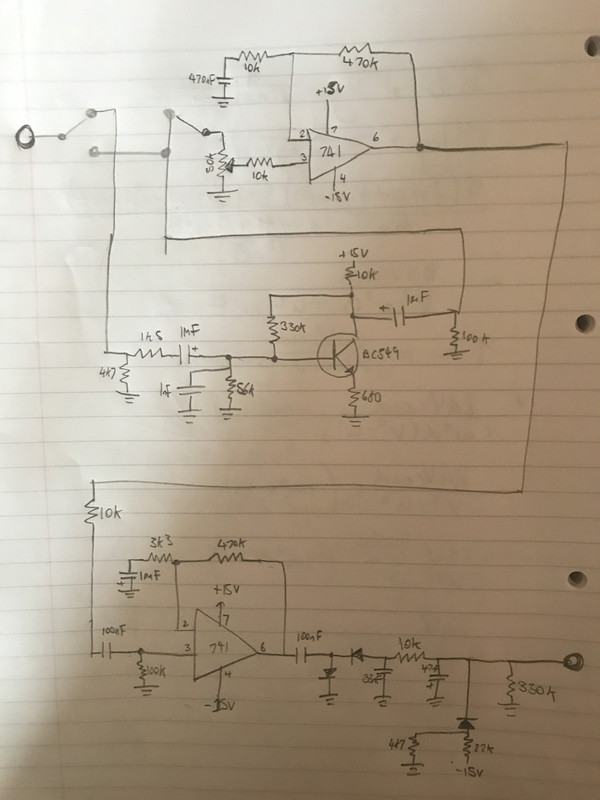 10k
470k
470nF
+15V
2
7
6
741
50k
3
10k
4
-15V
+15V
10k
+
1mF
330k
1k5
1mF
+
BC549
100k
4k7
1nF
56k
680
10k
3k3
470k
+
1mF
+15V
100nF
2
7
100nF
741
6
3
10k
100k
4
-15V
33nF
+
330k
4k7
22k
-15V